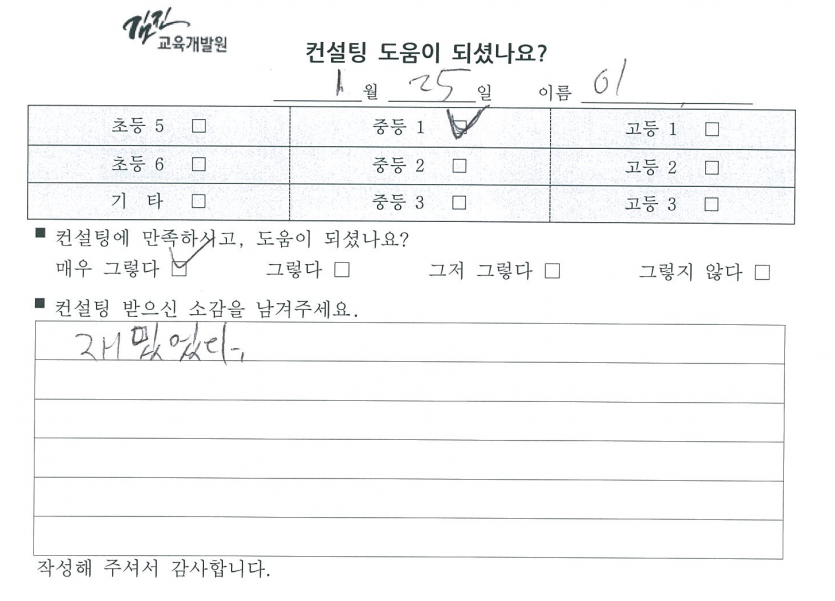 김진
교육개발원
컨설팅 도움이 되셨나요?
1 월 25 일 이름 이
초등 5 □ 중등 1 ☑ 고등 1 □
초등 6 □ 중등 2 □ 고등 2 □
기 타 □ 중등 3 □ 고등 3 □
■ 컨설팅에 만족하시고, 도움이 되셨나요?
매우 그렇다 ☑ 그렇다 □ 그저 그렇다 □ 그렇지 않다 □
■ 컨설팅 받으신 소감을 남겨주세요.
재밌었다.
작성해 주셔서 감사합니다.